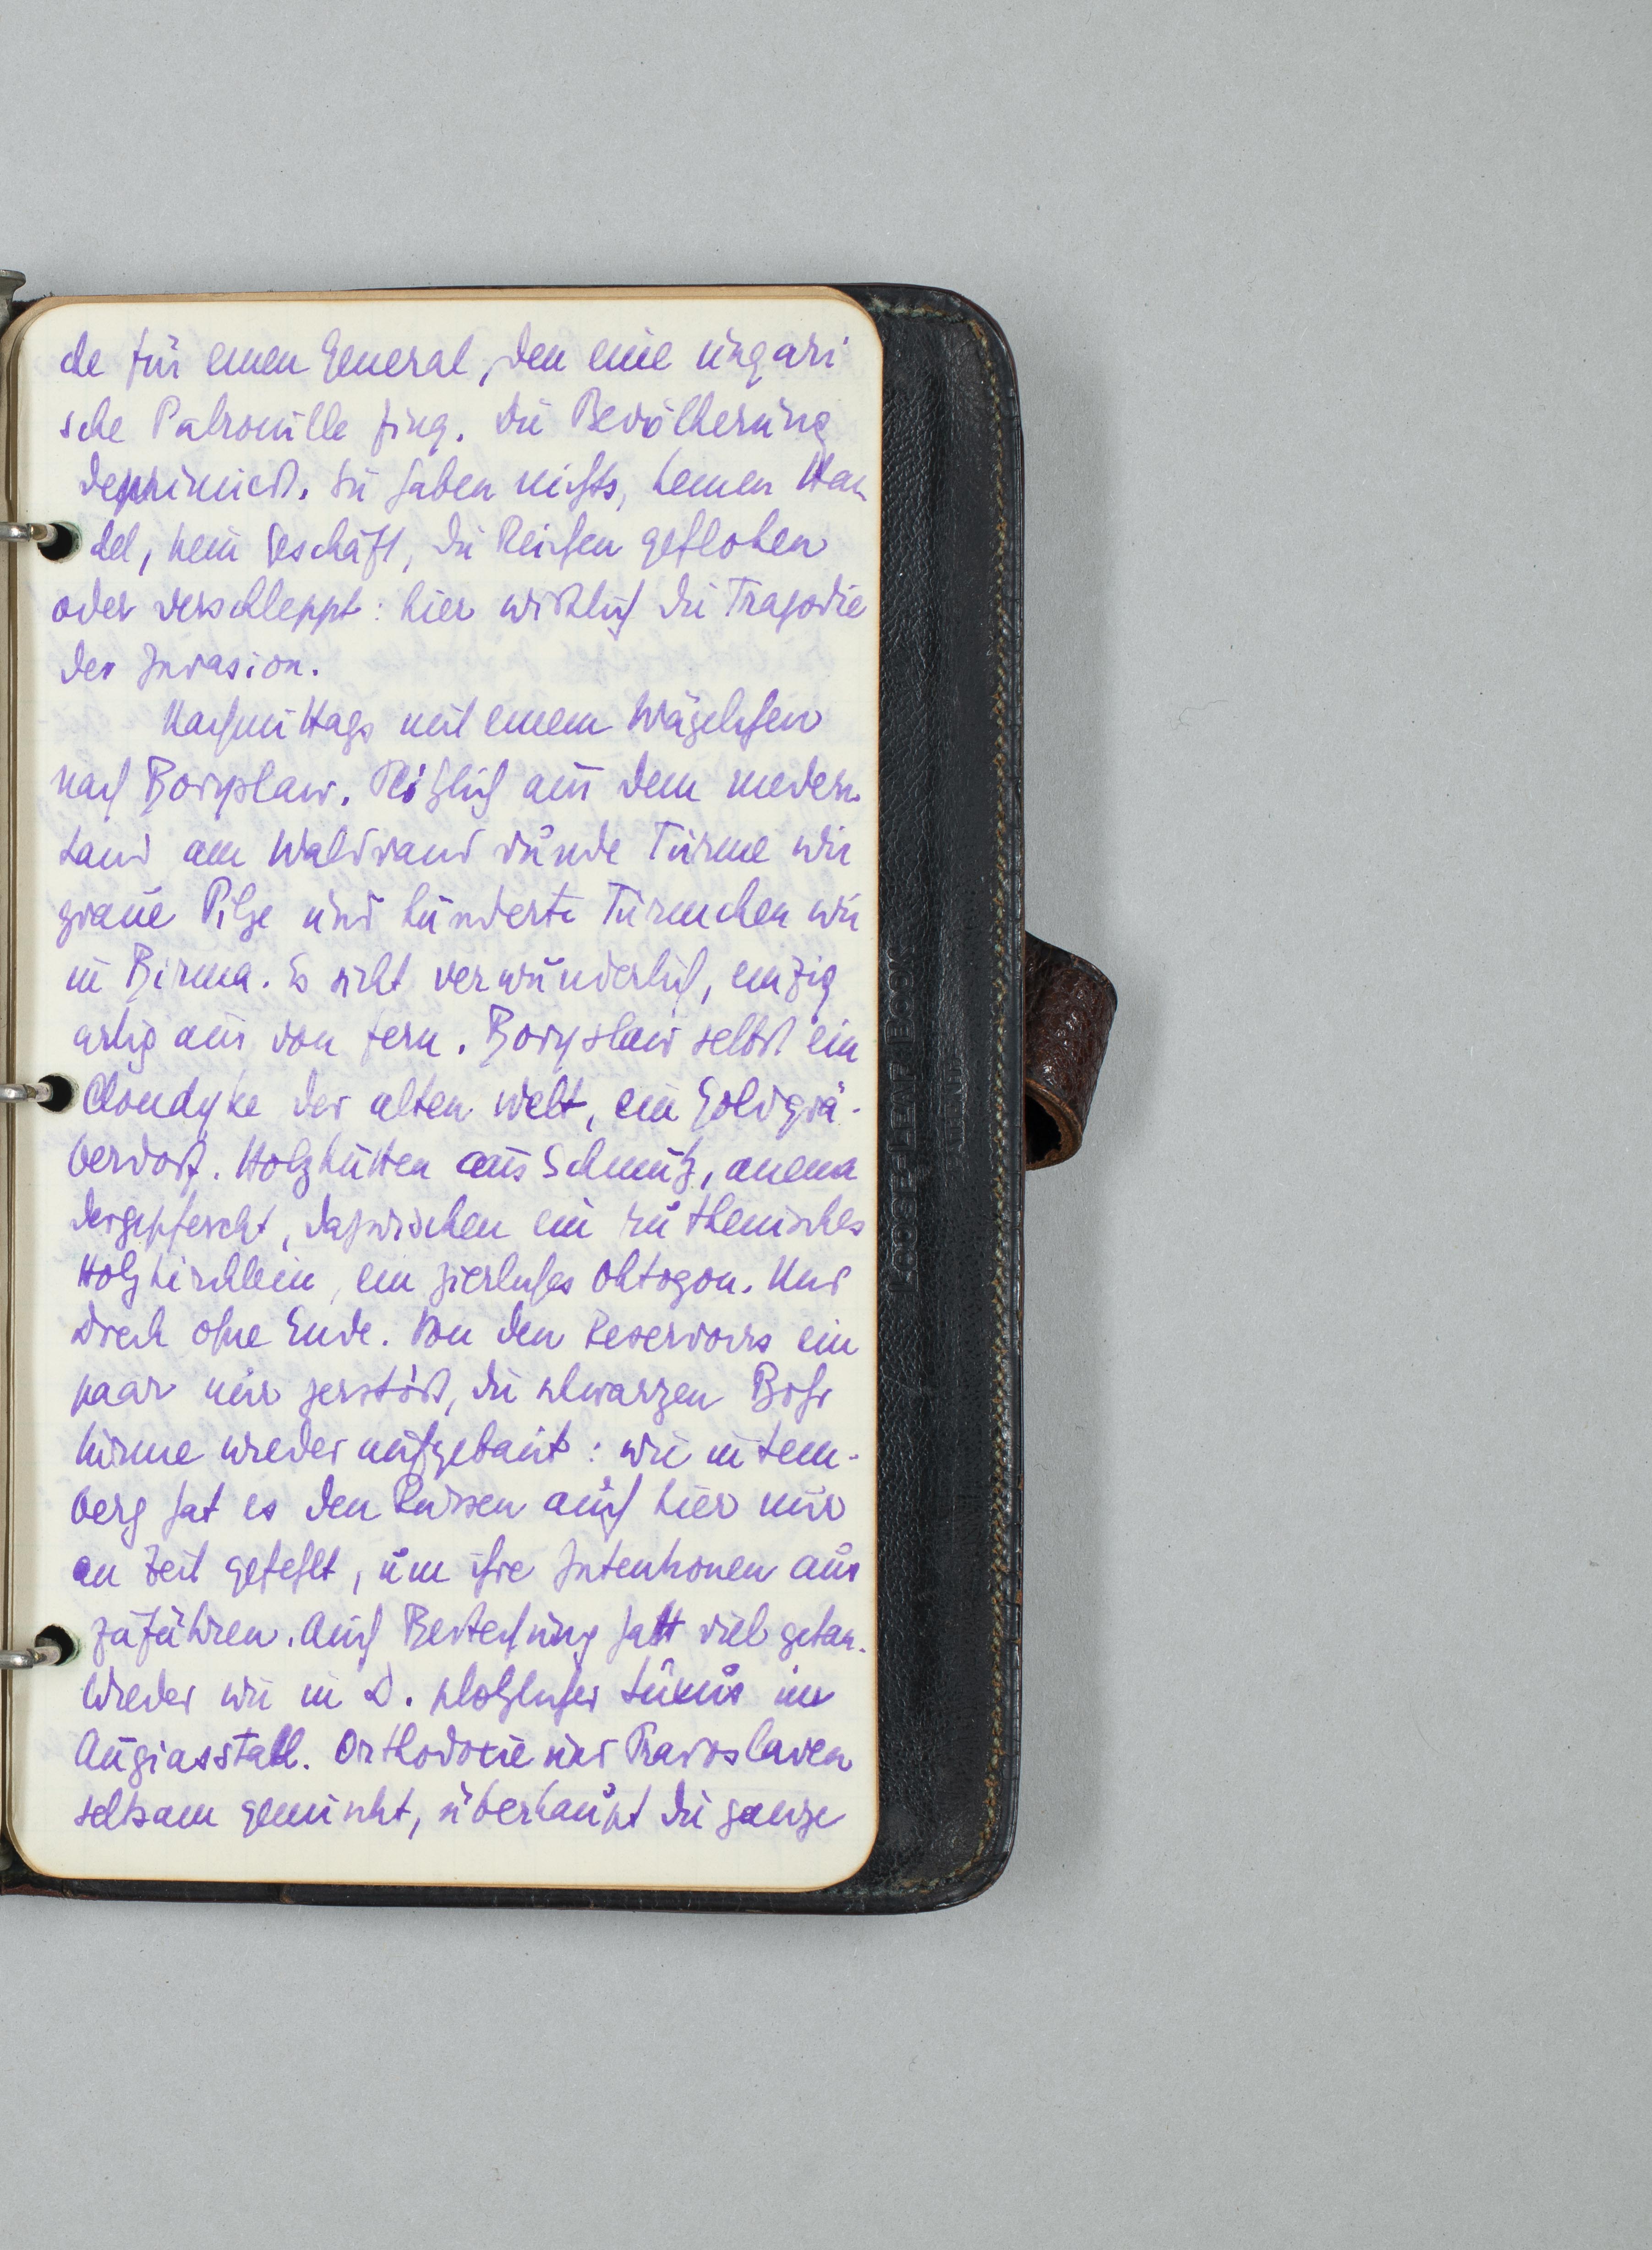 de für einen General, den eine ungari
sche Patrouille fing. Die Bevölkerung
deprimiert. Sie haben nichts, keinen Han
del, kein Geschäft, die Reichen geflohen
oder verschleppt: hier wirklich die Tragödie
der Invasion.
Nachmittags mit einem Wägelchen
nach Boryslaw. Plötzlich aus dem niedern
Land am Waldrand runde Türme wie
graue Pilze und hunderte Türmchen wie
in Birma. Es sieht verwunderlich, einzig
artig aus von fern. Boryslaw selbst ein
Cloudyke der alten Welt, ein Goldgrä-
berdorf. Holzhütten aus Schmutz, aneina
dergepfercht, dazwischen ein ruthenisches
Holzkirchlein, ein zierliches Oktogon. Und
Dreck ohne Ende. Von den Reservoirs ein
paar nur zerstört, die schwarzen Bohr
türme wieder aufgebaut: wie in Lem-
berg hat es den Russen auch hier nur
an Zeit gefehlt, um ihre Intentionen aus
zuführen. Auch Bestechung hatt viel getan.
Wieder wie in D. plötzlicher Luxus im
Augiasstall. Orthodoxie und Pravoslaven
seltsam gemischt, überhaupt die ganze
LOOSE-LEAF BOOK